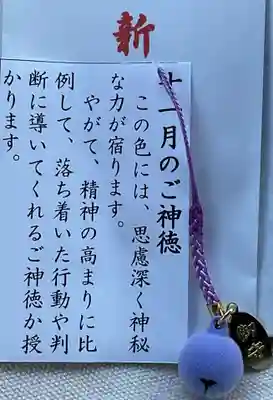 新
十一月のご神徳
この色には、思慮深く神秘
な力が宿ります。
やがて、精神の高まりに比
例して、落ち着いた行動や判
断に導いてくれるご神徳か授
かります。
御守